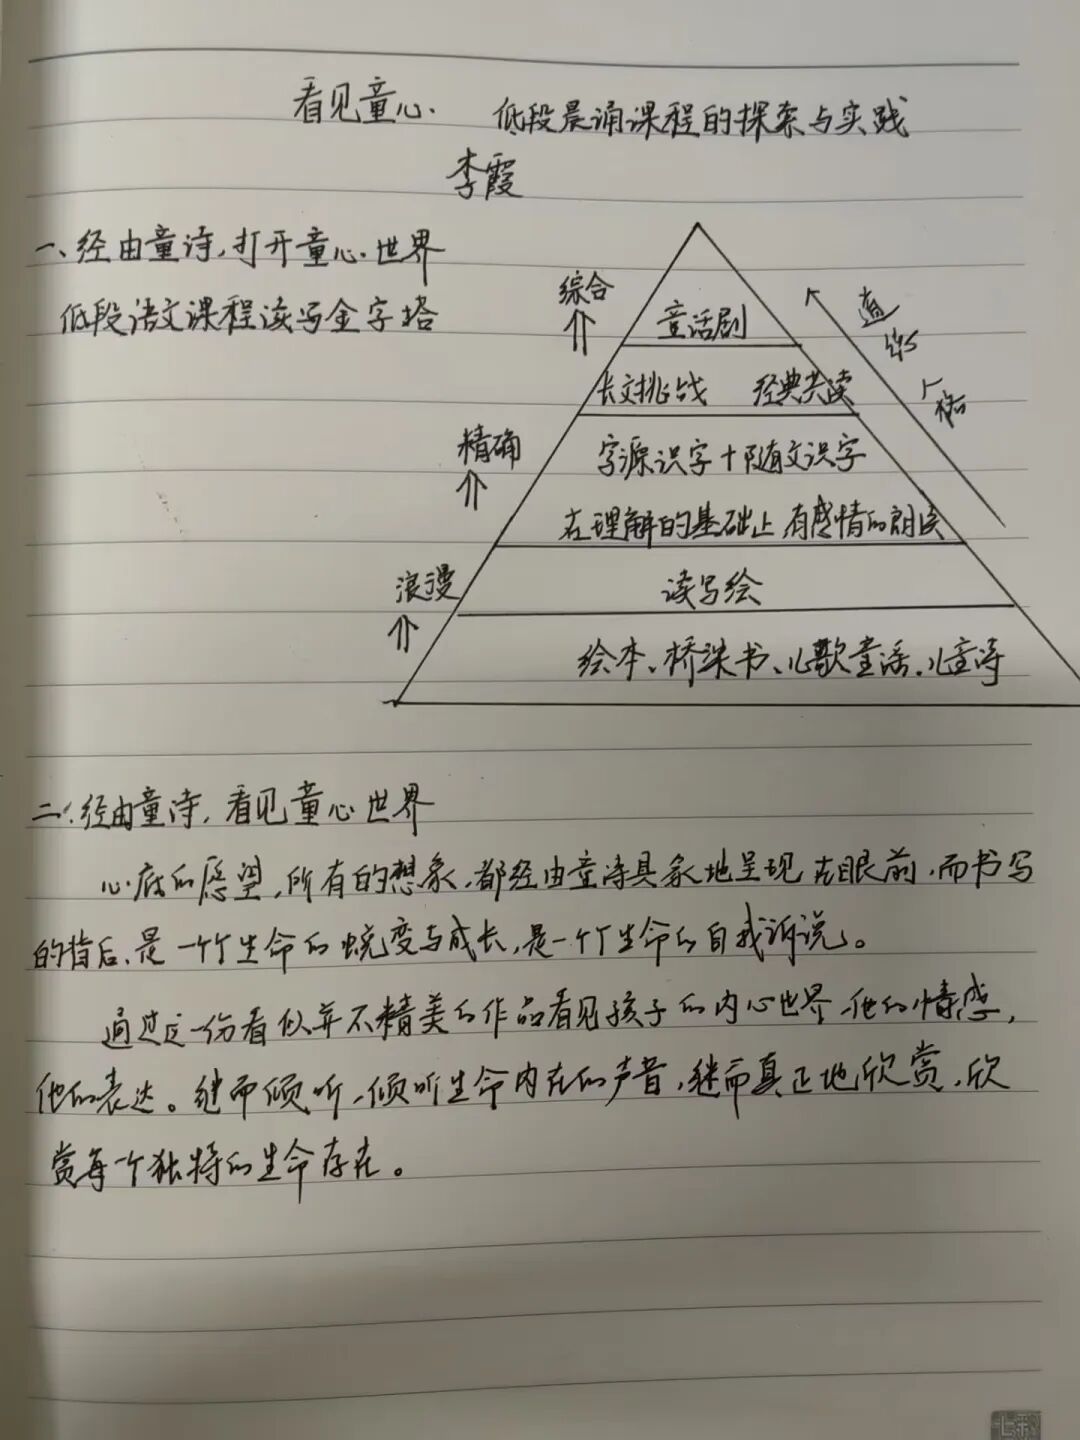 看见童心.
低段晨诵课程的探索与实践
李霞
一、经由童诗,打开童心世界
低段语文课程读写金字塔
综合
童话剧
道
长文挑战 经典共读
人格
精确
字源识字+随文识字
在理解的基础上 有感情的朗读
浪漫
读写绘
绘本、桥梁书、儿歌童谣、儿童诗
二、经由童诗,看见童心世界
心底的愿望,所有的想象,都经由童诗具象地呈现在眼前,而书写
的背后,是一个个生命的蜕变与成长,是一个个生命的自我诉说。
通过这一份看似并不精美的作品看见孩子的内心世界、他的情感,
他的表达。继而倾听,倾听生命内在的声音,继而真正地欣赏,欣
赏每一个独特的生命存在。
七彩